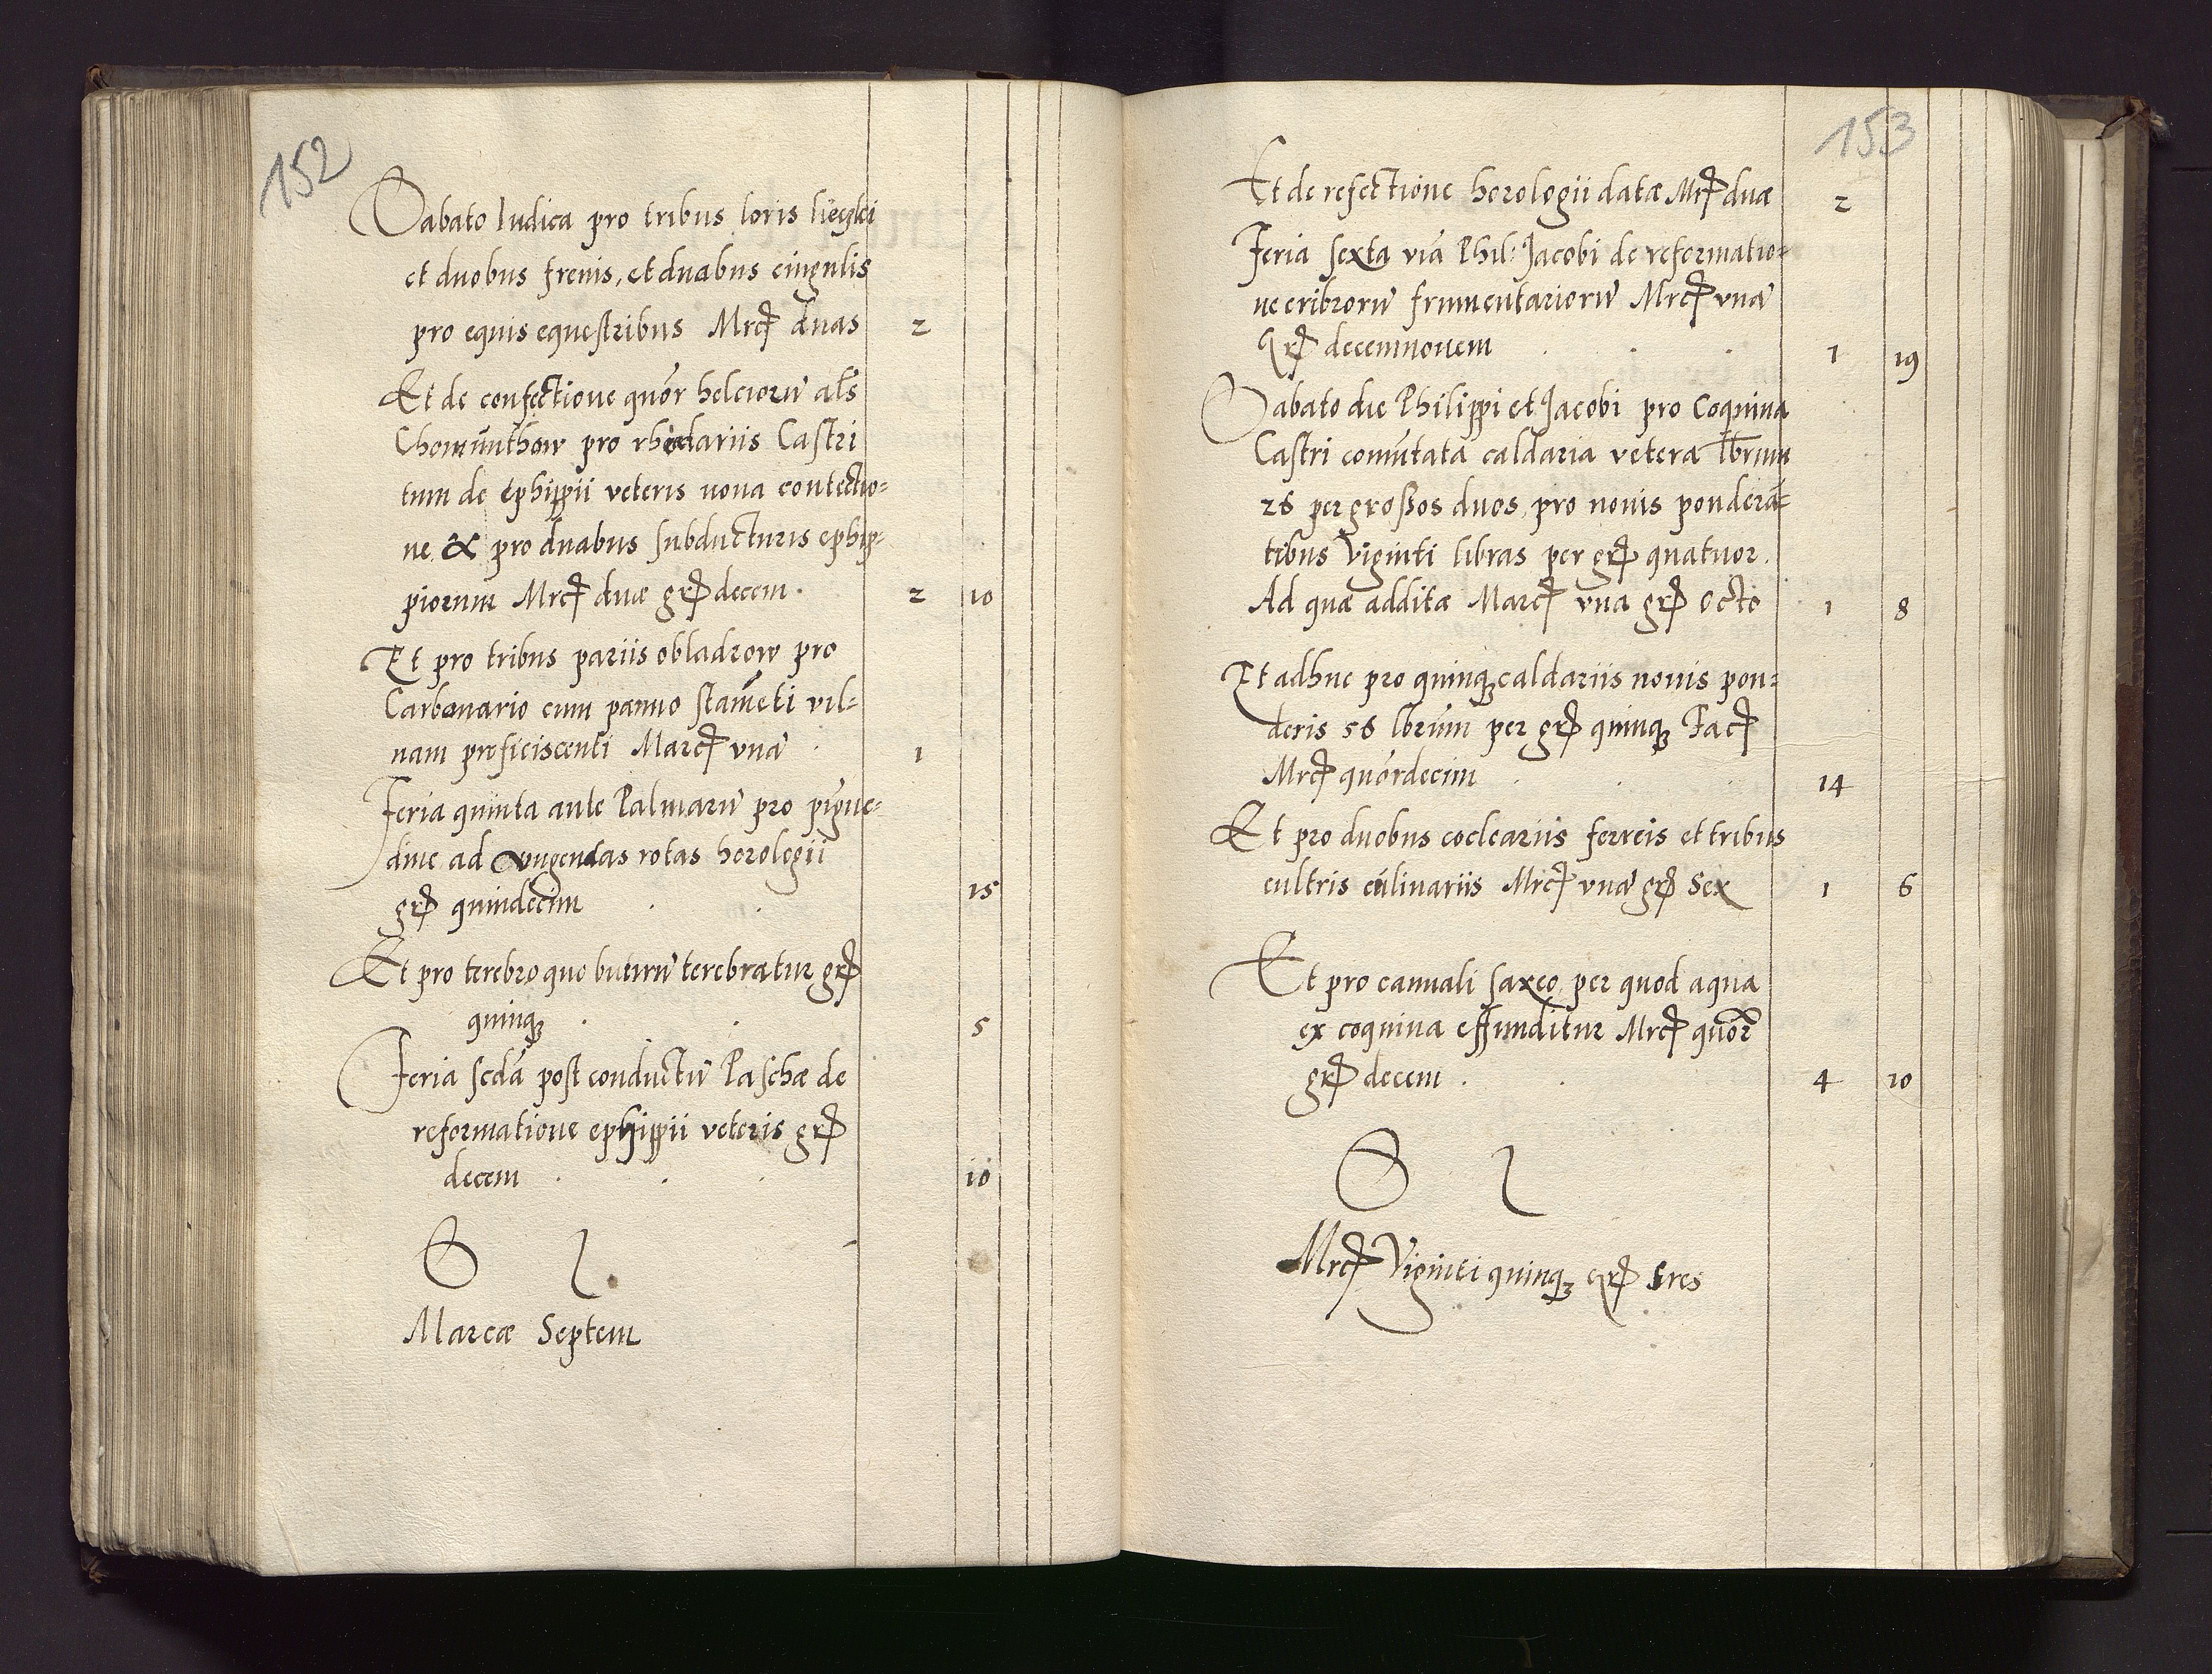 152
Sabato Iudica pro tribus loris lieczki 2
et duobus frenis, et duabus cingulis
pro equis equestribus Mrcꝭ duas 2
Et de confectione quor helciorū als
Chomunthow pro rhedariis Castri
tum de ephippii veteris noua contectio=
ne & pro duabus subducturis ephip=
piorum Mrcꝭ duæ grꝭ decem. 2 10
Et pro tribus pariis obladrow pro
Carbonario cum panno stameti vil=
nam proficiscenti Marcꝭ vnā 1
Feria quinta ante Palmarū pro pigue=
dine ad vngendas rotas horologii
grꝭ quindecim 15
Et pro terebro quo butirū terebratur grꝭ
quinqꝫ 5
Feria scda post conductū Paschæ de
reformatione ephippii veteris grꝭ
decem 10
S l
Marcæ Septem
153
Et de refectione horologii datæ Mrcꝭ duæ 2
Feria sexta via Phil: Jacobi de reformatio=
ne cribrorū frumentariorū Mrcꝭ vnā
Grꝭ decemnouem 1 19
Sabato die Philippi et Jacobi pro Coquina
Castri comutata caldaria vetera lbrum
26 per grossos duos, pro nouis pondera=
tibus Viginti libras per grꝭ quatuor.
Ad quæ additæ Marcꝭ vna grꝭ Octo 1 8
Et adhuc pro quinqꝫ caldariis nouis pon=
deris 56 lbrum per grꝭ quinqꝫ Facꝭ
Mrcꝭ quordecim 14
Et pro duobus cocleariis ferreis et tribus
cultris culinariis Mrcꝭ vnā grꝭ Sex 1 6
Et pro cannali saxeo per quod aqua
ex coquina effunditur Mrcꝭ quor
grꝭ decem 4 10
S l
Mrcꝭ Viginti quinqꝫ grꝭ tres